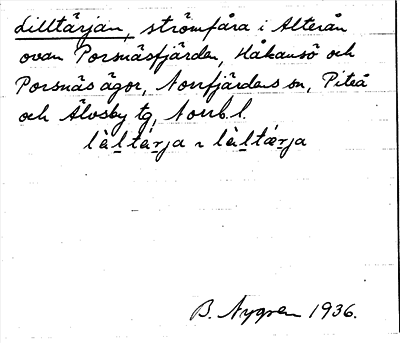 Lilltärjan, strömfåra i Alterån
ovan Porsnäsfjärden, Håkansö och
Porsnäs ägor, Norrfjärdens sn, Piteå
och Älvsby tg, Norrb. l.
lìltä́rja ~ lìltǽrja
B. Nygren 1936.